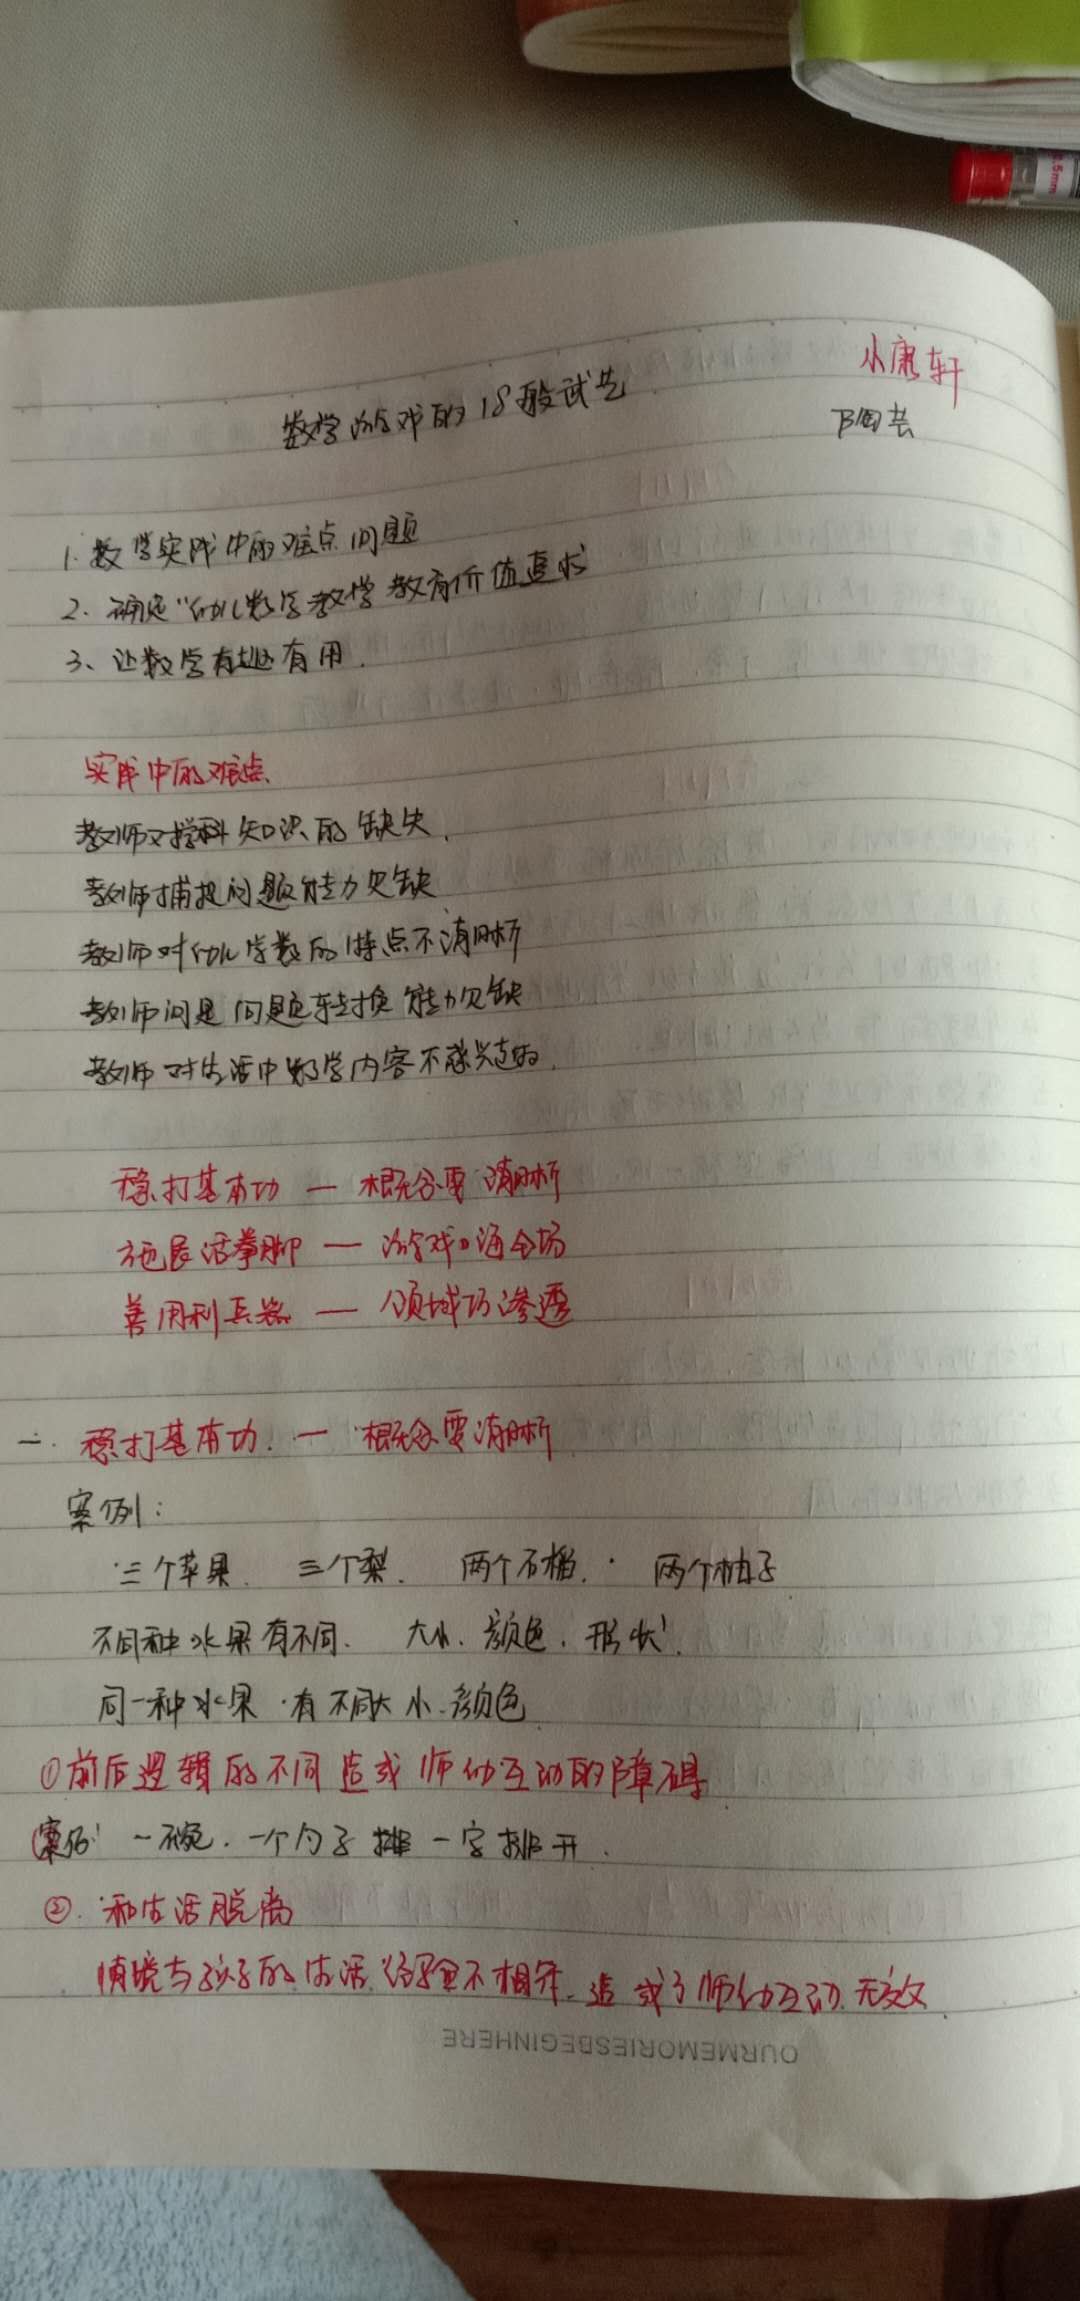 小康轩
数学游戏的18般武艺
陶芸
1. 数学实践中的难点问题
2、确定"幼儿数学教学教育价值追求
3、让数学有趣有用.
实践中的难点
教师对学科知识的缺失.
教师捕捉问题能力欠缺
教师对幼儿学数的特点不清晰
教师问题问题转换能力欠缺
教师对生活中数学内容不感兴趣.
稳打基本功 — 概念要清晰
施展活拳脚 — 游戏口海全场
善用利兵器 — 领域巧渗透
一. 稳打基本功. — 概念要清晰
案例:
三个苹果. 三个梨. 两个石榴. 两个柚子
不同种水果有不同. 大小. 颜色. 形状.
同一种水果 有不同大小.颜色
①前后逻辑的不同造成师幼互动的障碍
案例: 一碗. 一个勺子排一字排开.
②. 和生活脱离
情境与孩子的生活经验不相符. 造成了师幼互动无效.
OURMEMORIESBEGINHERE
0.5mm